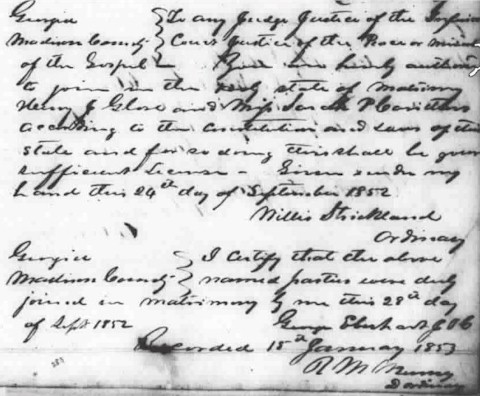 Georgia } To any Judge Justice of the Inferior
Madison County } Court Justice of the Peace or Minist
of the Gospel – You are hereby author
to join in the holy state of matrimony
Henry J Glore and Miss Sarah P Carithers
according to the constitution and laws of this
state and for so doing this shall be your
sufficient License – Given under my
hand this 24th day of September 1852
Willis Strickland
Ordinary
Georgia } I certify that the above
Madison County } named parties were duly
joined in matrimony by me this 28th day
of Sept 1852 George Eberhart J I C
Recorded 18th January 1853
R M